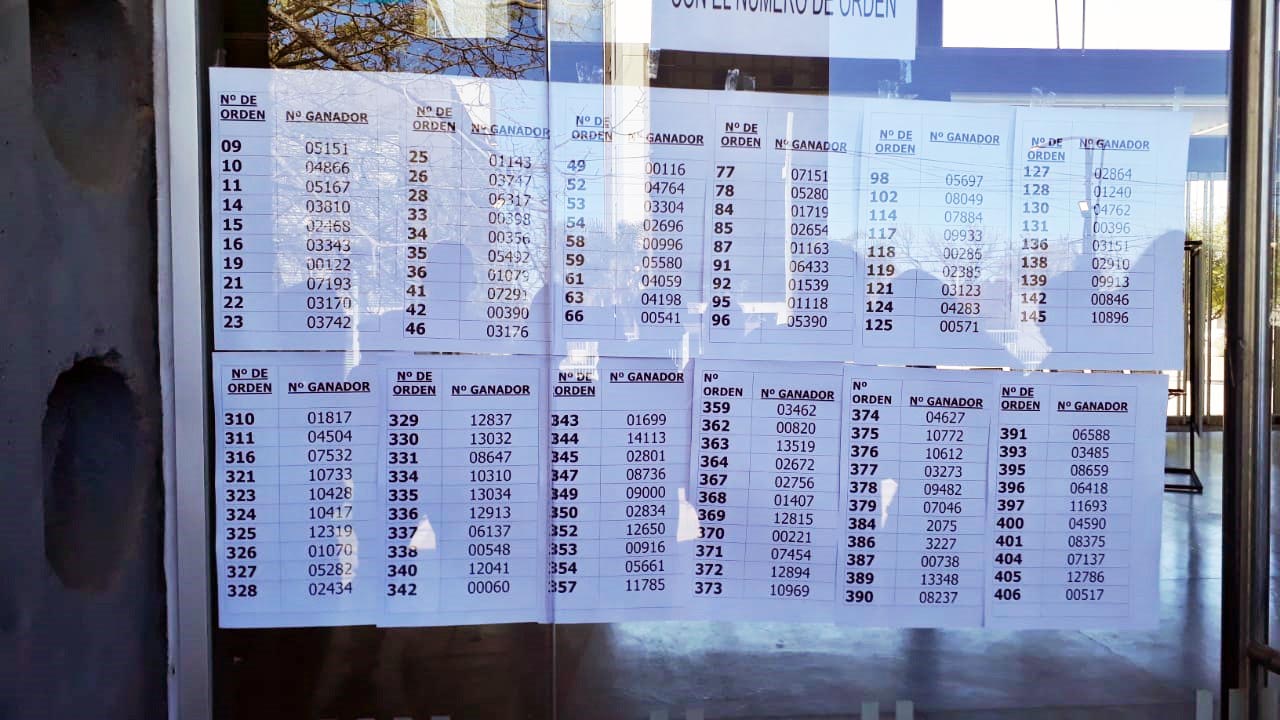 CON EL NÚMERO DE ORDEN
Nº DE ORDEN Nº GANADOR
09 05151
10 04866
11 05167
14 03810
15 02468
16 03343
19 00122
21 07193
22 03170
23 03742
Nº DE ORDEN Nº GANADOR
25 01143
26 03747
28
33 00398
34 00356
35 05492
36 01079
41 07291
42 00390
46 03176
Nº DE ORDEN Nº GANADOR
49 00116
52 04764
53 03304
54 02696
58 00996
59 05580
61 04059
63 04198
66 00541
Nº DE ORDEN Nº GANADOR
77 07151
78 05280
84 01719
85 02654
87 01163
91 06433
92 01539
95 01118
96 05390
Nº DE ORDEN Nº GANADOR
98 05697
102 08049
114 07884
117 09933
118 00286
119 02385
121 03123
124 04283
125 00571
Nº DE ORDEN Nº GANADOR
127 02864
128 01240
130 04762
131 00396
136 03151
138 02910
139 09913
142 00846
145 10896
Nº DE ORDEN Nº GANADOR
310 01817
311 04504
316 07532
321 10733
323 10428
324 10417
325 12319
326 01070
327 05282
328 02434
Nº DE ORDEN Nº GANADOR
329 12837
330 13032
331 08647
334 10310
335 13034
336 12913
337 06137
338 00548
340 12041
342 00060
Nº DE ORDEN Nº GANADOR
343 01699
344 14113
345 02801
347 08736
349 09000
350 02834
352 12650
353 00916
354 05661
357 11785
Nº ORDEN Nº GANADOR
359 03462
362 00820
363 13519
364 02672
367 02756
368 01407
369 12815
370 00221
371 07454
372 12894
373 10969
Nº ORDEN Nº GANADOR
374 04627
375 10772
376 10612
377 03273
378 09482
379 07046
384 2075
386 3227
387 00738
389 13348
390 08237
Nº DE ORDEN Nº GANADOR
391 06588
393 03485
395 08659
396 06418
397 11693
400 04590
401 08375
404 07137
405 12786
406 00517